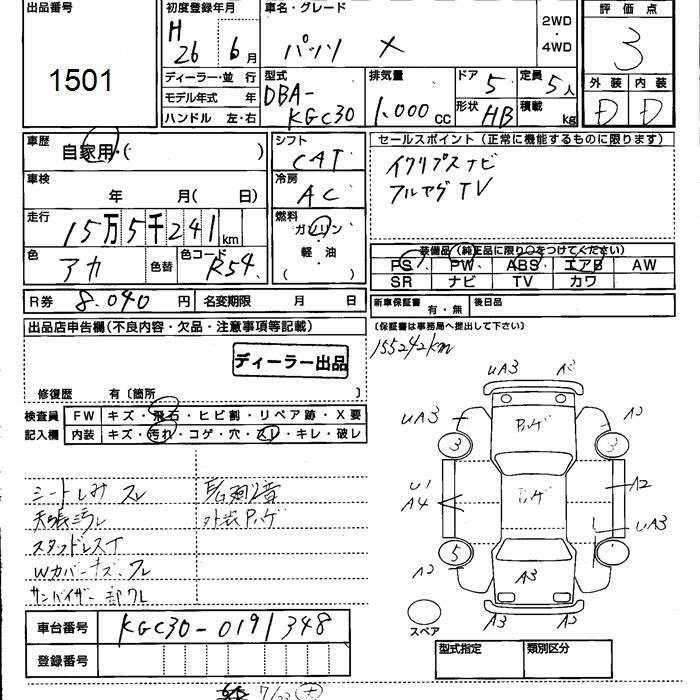 出品番号
1501
初度登録年月
H 26 6月
ディーラー・並行
モデル年式 年
ハンドル 左・右
車名・グレード
パッソ X
2WD
・
4WD
型式
DBA-
KGC30
排気量
1.000cc
ドア 5
形状 HB
定員 5人
積載 kg
評価点
3
外装 内装
D D
車歴
自家用・( )
車検
年 月( 日)
走行
15万5千241km
色
アカ
色替
色コード
R54
シフト
CAT
冷房
AC
燃料
ガソリン
軽油
( )
セールスポイント(正常に機能するものに限ります)
イクリプスナビ
フルセグTV
装備品(純正品に限り○をつけてください)
PS PW ABS エアB AW
SR ナビ TV カワ
R券 8.040円 名変期限 月 日
新車保証書 有・無 後日品
(保証書は事務局へ提出して下さい)
155242km
出品店申告欄(不良内容・欠品・注意事項等記載)
ディーラー出品
修復歴 有〔箇所 〕
検査員
記入欄
FW キズ・飛石・ヒビ割・リペア跡・X要
内装 キズ・汚れ・コゲ・穴・スレ・キレ・破レ
シートしみ スレ
外装Pハゲ
スタッドレスT
サンバイザー
UA3
UA3
3
3
Pハゲ
U1
A4
Pハゲ
A2
UA3
5
A3
A3
A3
スペア
車台番号 KGC30-0191348
登録番号
型式指定 類別区分
7/23(土)